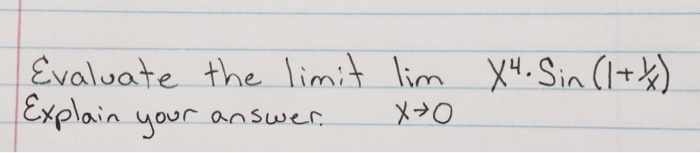 Evaluate the limit lim X⁴·Sin(1+1/x)
Explain your answer. X→0